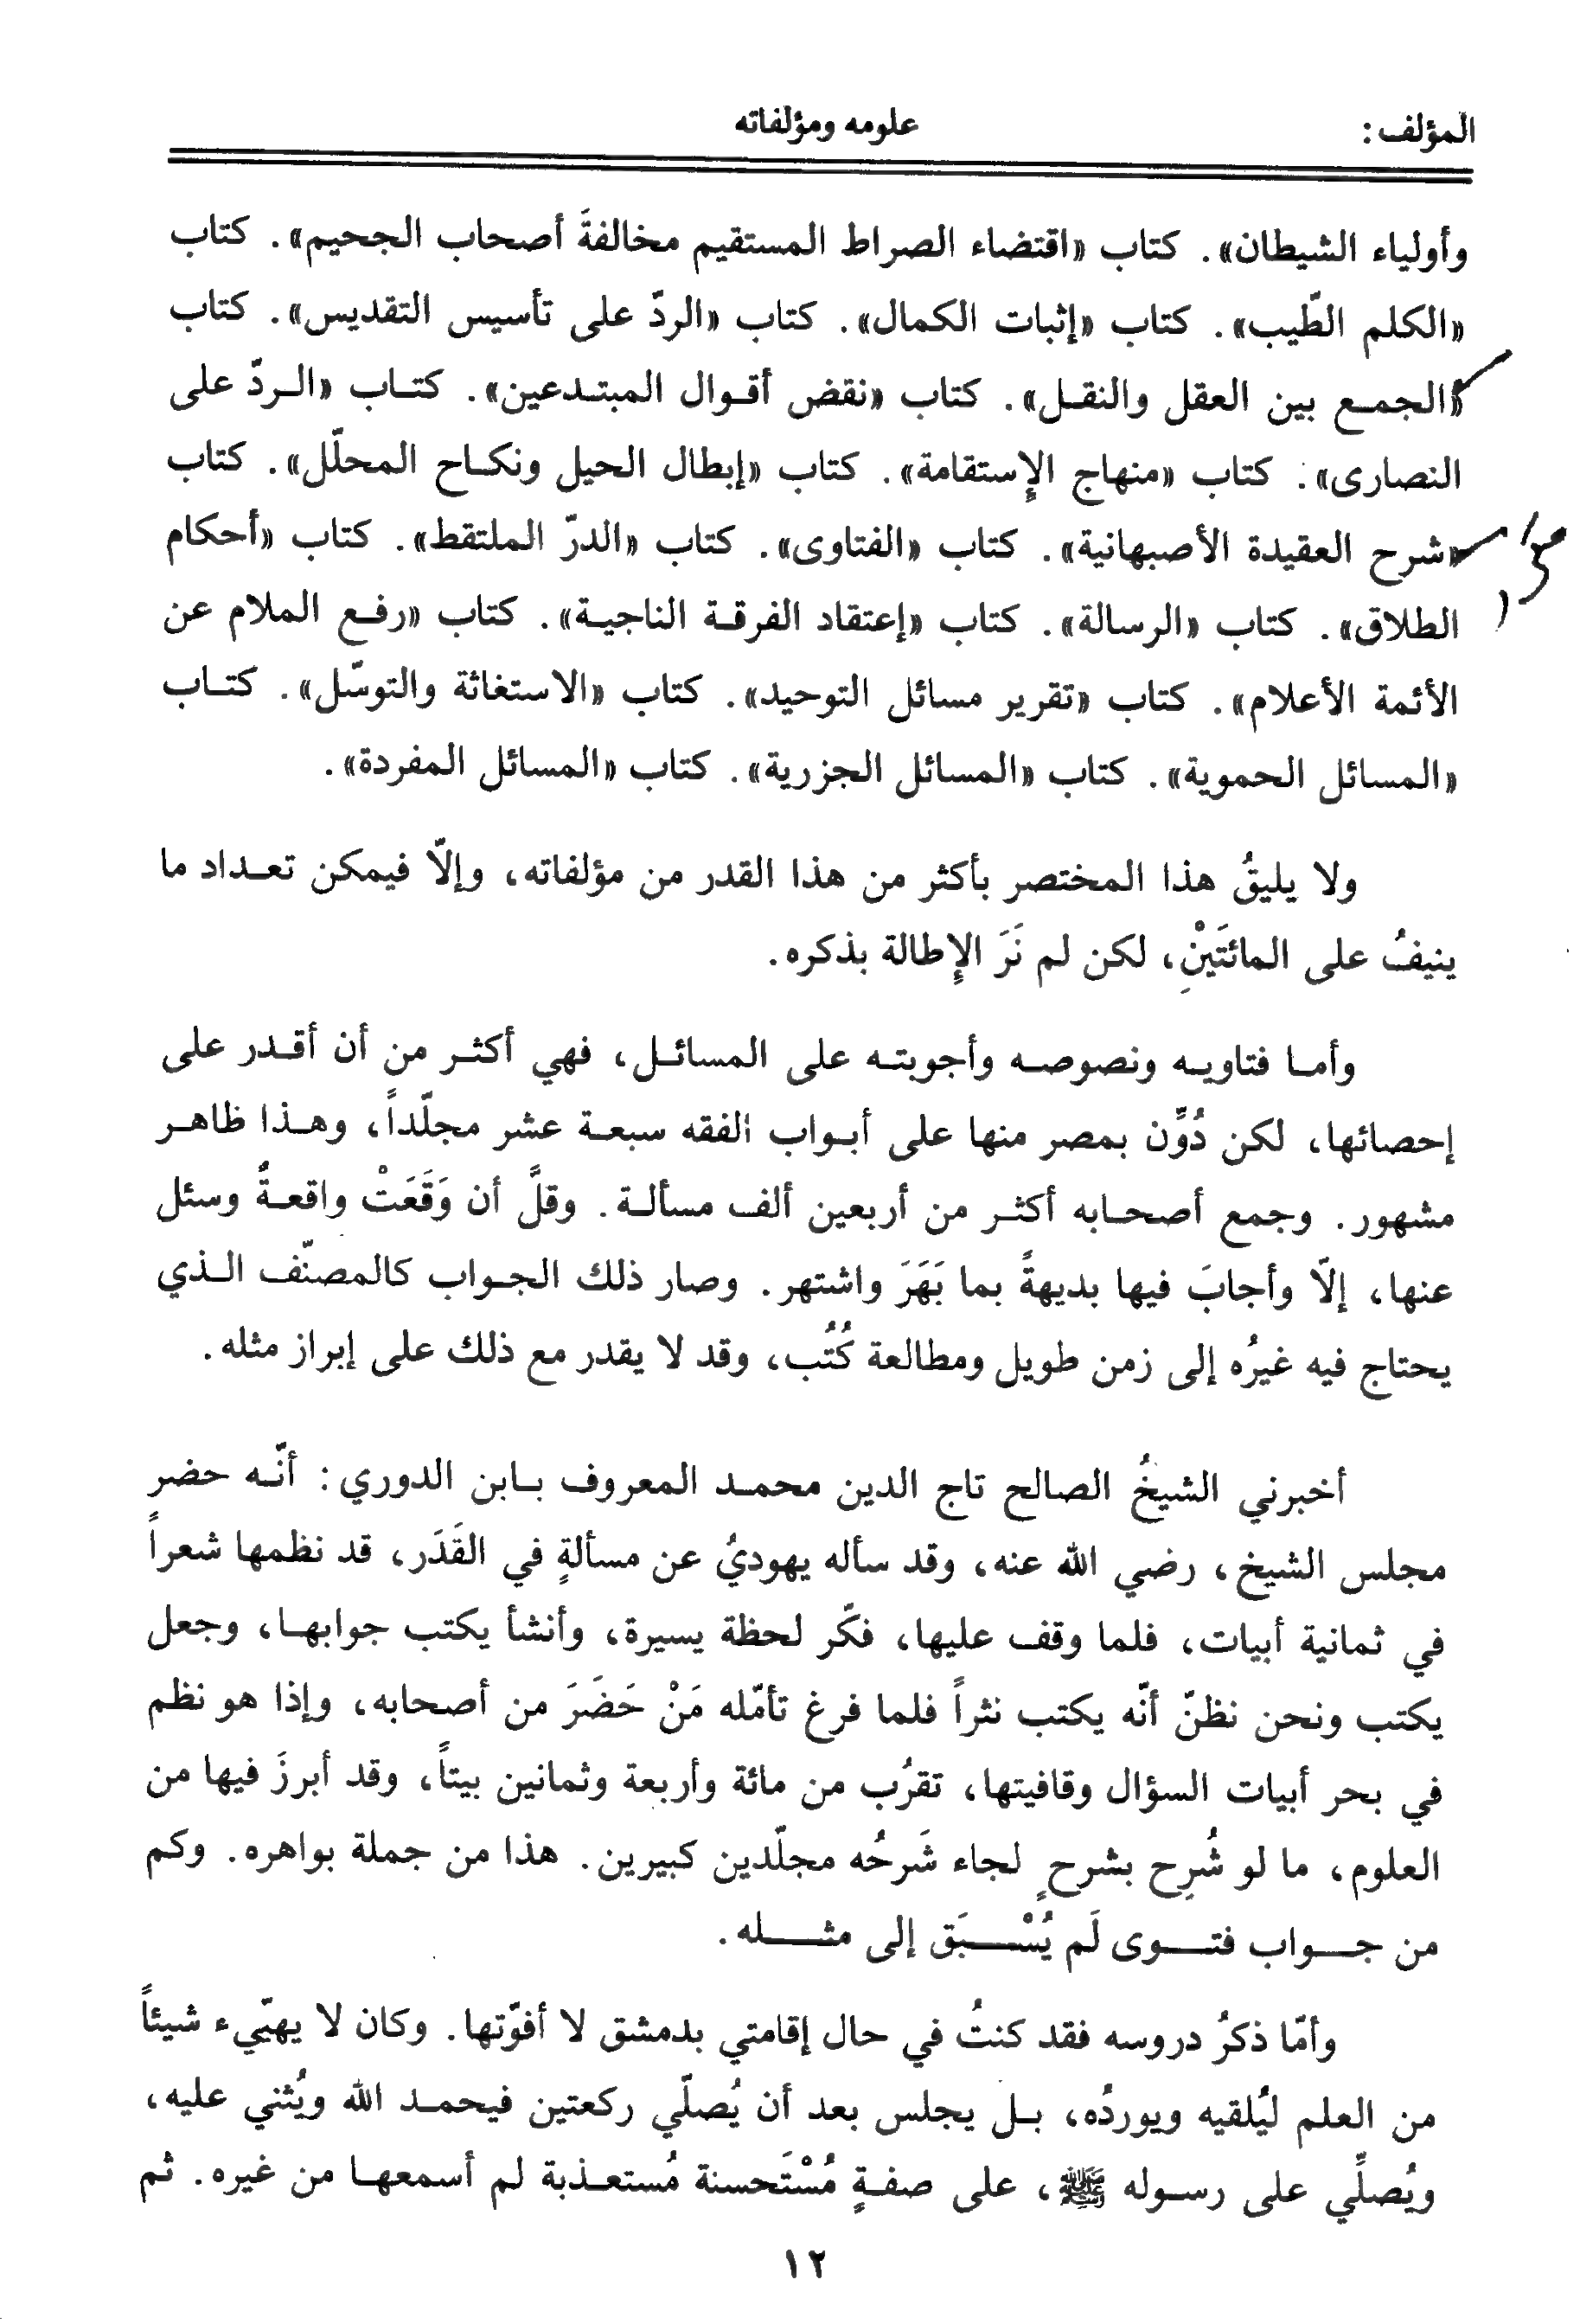 المؤلف : علومه ومؤلفاته
وأولياء الشيطان». كتاب «اقتضاء الصراط المستقيم مخالفةَ أصحاب الجحيم». كتاب
«الكلم الطّيب». كتاب «إثبات الكمال». كتاب «الردّ على تأسيس التقديس». كتاب
«الجمـع بين العقل والنقـل». كتاب «نقض أقـوال المبتـدعين». كتـاب «الـردّ على
النصارى». كتاب «منهاج الإستقامة». كتاب «إبطال الحيل ونكـاح المحلّل». كتاب
«شرح العقيدة الأصبهانية». كتاب «الفتاوى». كتاب «الدرّ الملتقط». كتاب «أحكام
الطلاق». كتاب «الرسالة». كتاب «إعتقاد الفرقـة الناجيـة». كتاب «رفـع الملام عن
الأئمة الأعلام». كتاب «تقرير مسائل التوحيد». كتاب «الاستغاثة والتوسّل». كتـاب
«المسائل الحموية». كتاب «المسائل الجزرية». كتاب «المسائل المفردة».
ولا يليقُ هذا المختصر بأكثر من هذا القدر من مؤلفاته، وإلّا فيمكن تعـداد ما
ينيفُ على المائتَيْنِ، لكن لم نَرَ الإطالة بذكره.
وأمـا فتاويـه ونصوصـه وأجوبتـه على المسائـل، فهي أكثـر من أن أقـدر على
إحصائها، لكن دُوِّن بمصر منها على أبـواب الفقه سبعـة عشر مجلّداً، وهـذا ظاهـر
مشهور. وجمع أصحـابه أكثـر من أربعين ألف مسألـة. وقلَّ أن وَقَعَتْ واقعـةٌ وسئل
عنها، إلّا وأجابَ فيها بديهةً بما بَهَرَ واشتهر. وصار ذلك الجـواب كالمصنّف الـذي
يحتاج فيه غيرُه إلى زمن طويل ومطالعة كُتُب، وقد لا يقدر مع ذلك على إبراز مثله.
أخبرني الشيخُ الصالح تاج الدين محمـد المعروف بـابن الدوري: أنّـه حضر
مجلس الشيخ، رضي الله عنه، وقد سأله يهوديُ عن مسألةٍ في القَدَر، قد نظمها شعراً
في ثمانية أبيات، فلما وقف عليها، فكّر لحظة يسيرة، وأنشأ يكتب جوابهـا، وجعل
يكتب ونحن نظنّ أنّه يكتب نثراً فلما فرغ تأمّله مَنْ حَضَرَ من أصحابه، وإذا هو نظم
في بحر أبيات السؤال وقافيتها، تقرُب من مائة وأربعة وثمانين بيتاً، وقد أبرزَ فيها من
العلوم، ما لو شُرِح بشرحٍ لجاء شَرحُه مجلّدين كبيرين. هذا من جملة بواهره. وكم
من جـــواب فتـــوى لَم يُسْـــبَق إلى مثـــله.
وأمّا ذكرُ دروسه فقد كنتُ في حال إقامتي بدمشق لا أفوّتها. وكان لا يهيّيء شيئاً
من العلم ليُلقيه ويوردُه، بـل يجلس بعد أن يُصلّي ركعتين فيحمـد الله ويُثني عليه،
ويُصلِّي على رسـوله ﷺ، على صفـةٍ مُسْتَحسنة مُستعـذبة لم أسمعهـا من غيره. ثم
١٢